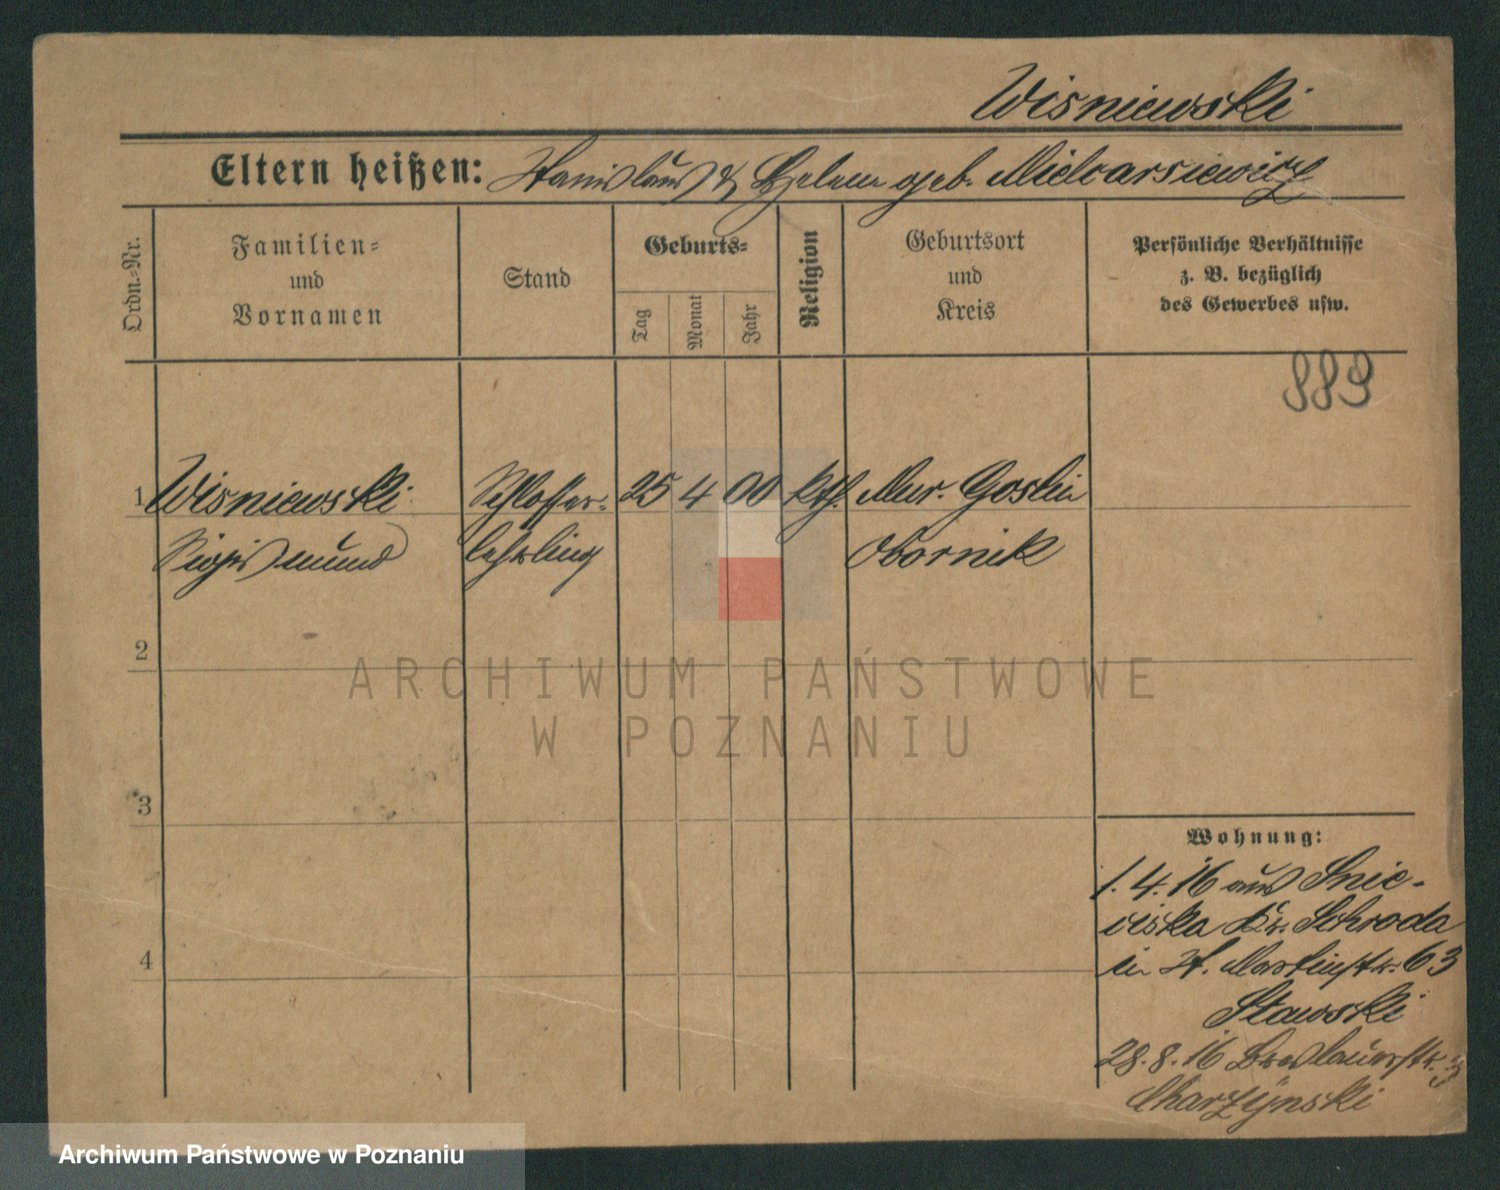 Wisniewski
Eltern heißen: Stanislaus & Helene geb. Mielcarsiewicz
Ordn.-Nr.
Familien-
und
Vornamen
Stand
Geburts-
Tag
Monat
Jahr
Religion
Geburtsort
und
Kreis
Persönliche Verhältnisse
z. B. bezüglich
des Gewerbes usw.
889
1 Wisniewski Schlosser- 25 4 00 kth. Mur. Goslin
Sigismund lehrling Obornik
2
3
4
Wohnung:
1.4.16 aus Snie-
ciska Kr. Schroda
in St. Martinstr. 63
Stawski
28.8.16 Breslauerstr.
Charzynski
ARCHIWUM PAŃSTWOWE
W POZNANIU
Archiwum Państwowe w Poznaniu